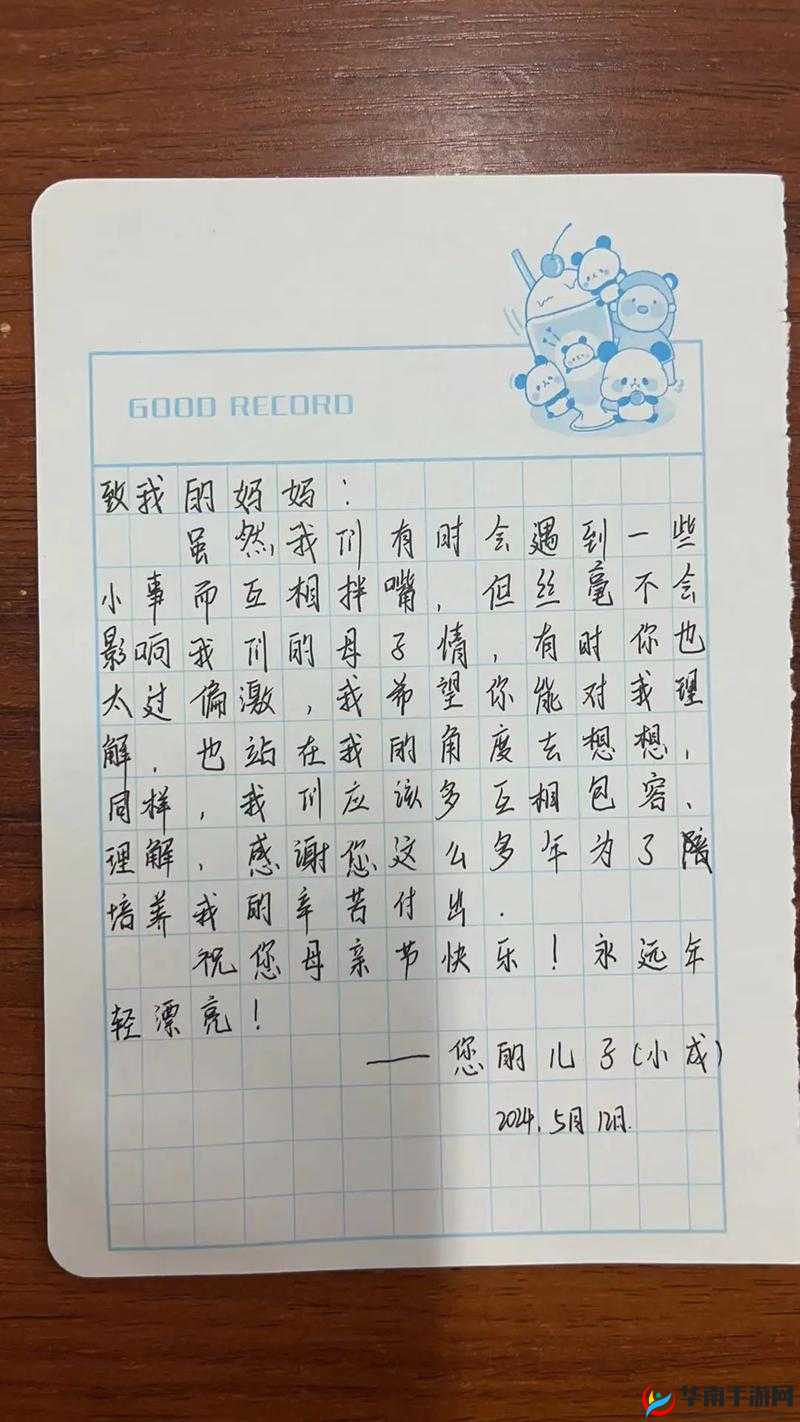 GOOD RECORD
致我的妈妈：
虽然我们有时会遇到一些
小事而互相拌嘴，但丝毫不会
影响我们的母子情，有时你也
太过偏激，我希望你能对我理
解，也站在我的角度去想想，
同样，我们应该多互相包容、
理解，感谢您这么多年为了陪
培养我的辛苦付出.
祝您母亲节快乐！永远年
轻漂亮！
——您的儿子(小成)
2024.5月12日.
华南手游网